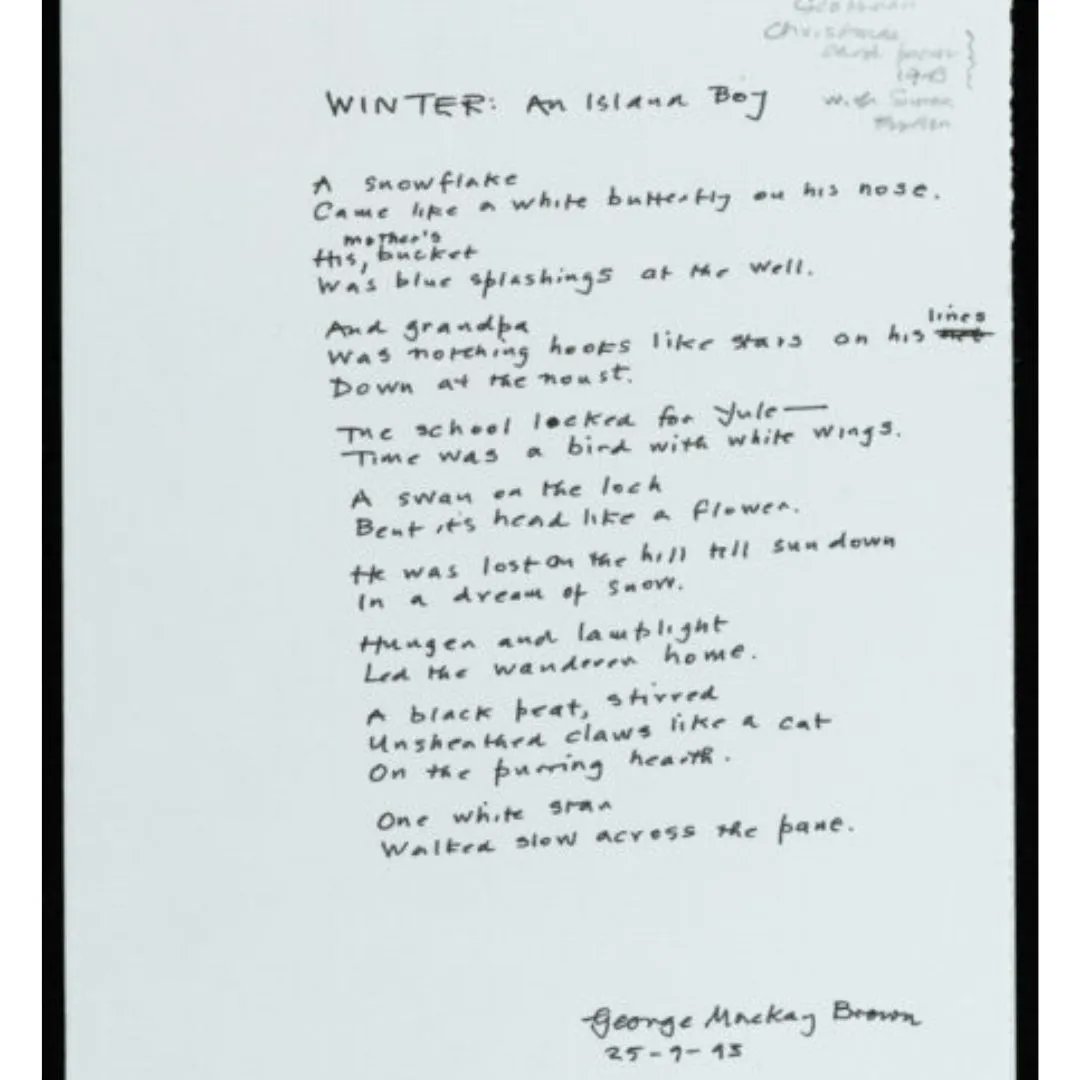 Christmas
card
with
WINTER: An Island Boy
A snowflake
Came like a white butterfly on his nose.
mother's
His, bucket
Was blue splashings at the well.
And grandpa
lines
Was notching hooks like stars on his net
Down at the noust.
The school locked for Yule—
Time was a bird with white wings.
A swan on the loch
Bent it's head like a flower.
He was lost on the hill till sundown
In a dream of snow.
Hunger and lamplight
Led the wanderer home.
A black peat, stirred
Unsheathed claws like a cat
On the purring hearth.
One white star
Walked slow across the pane.
George Mackay Brown